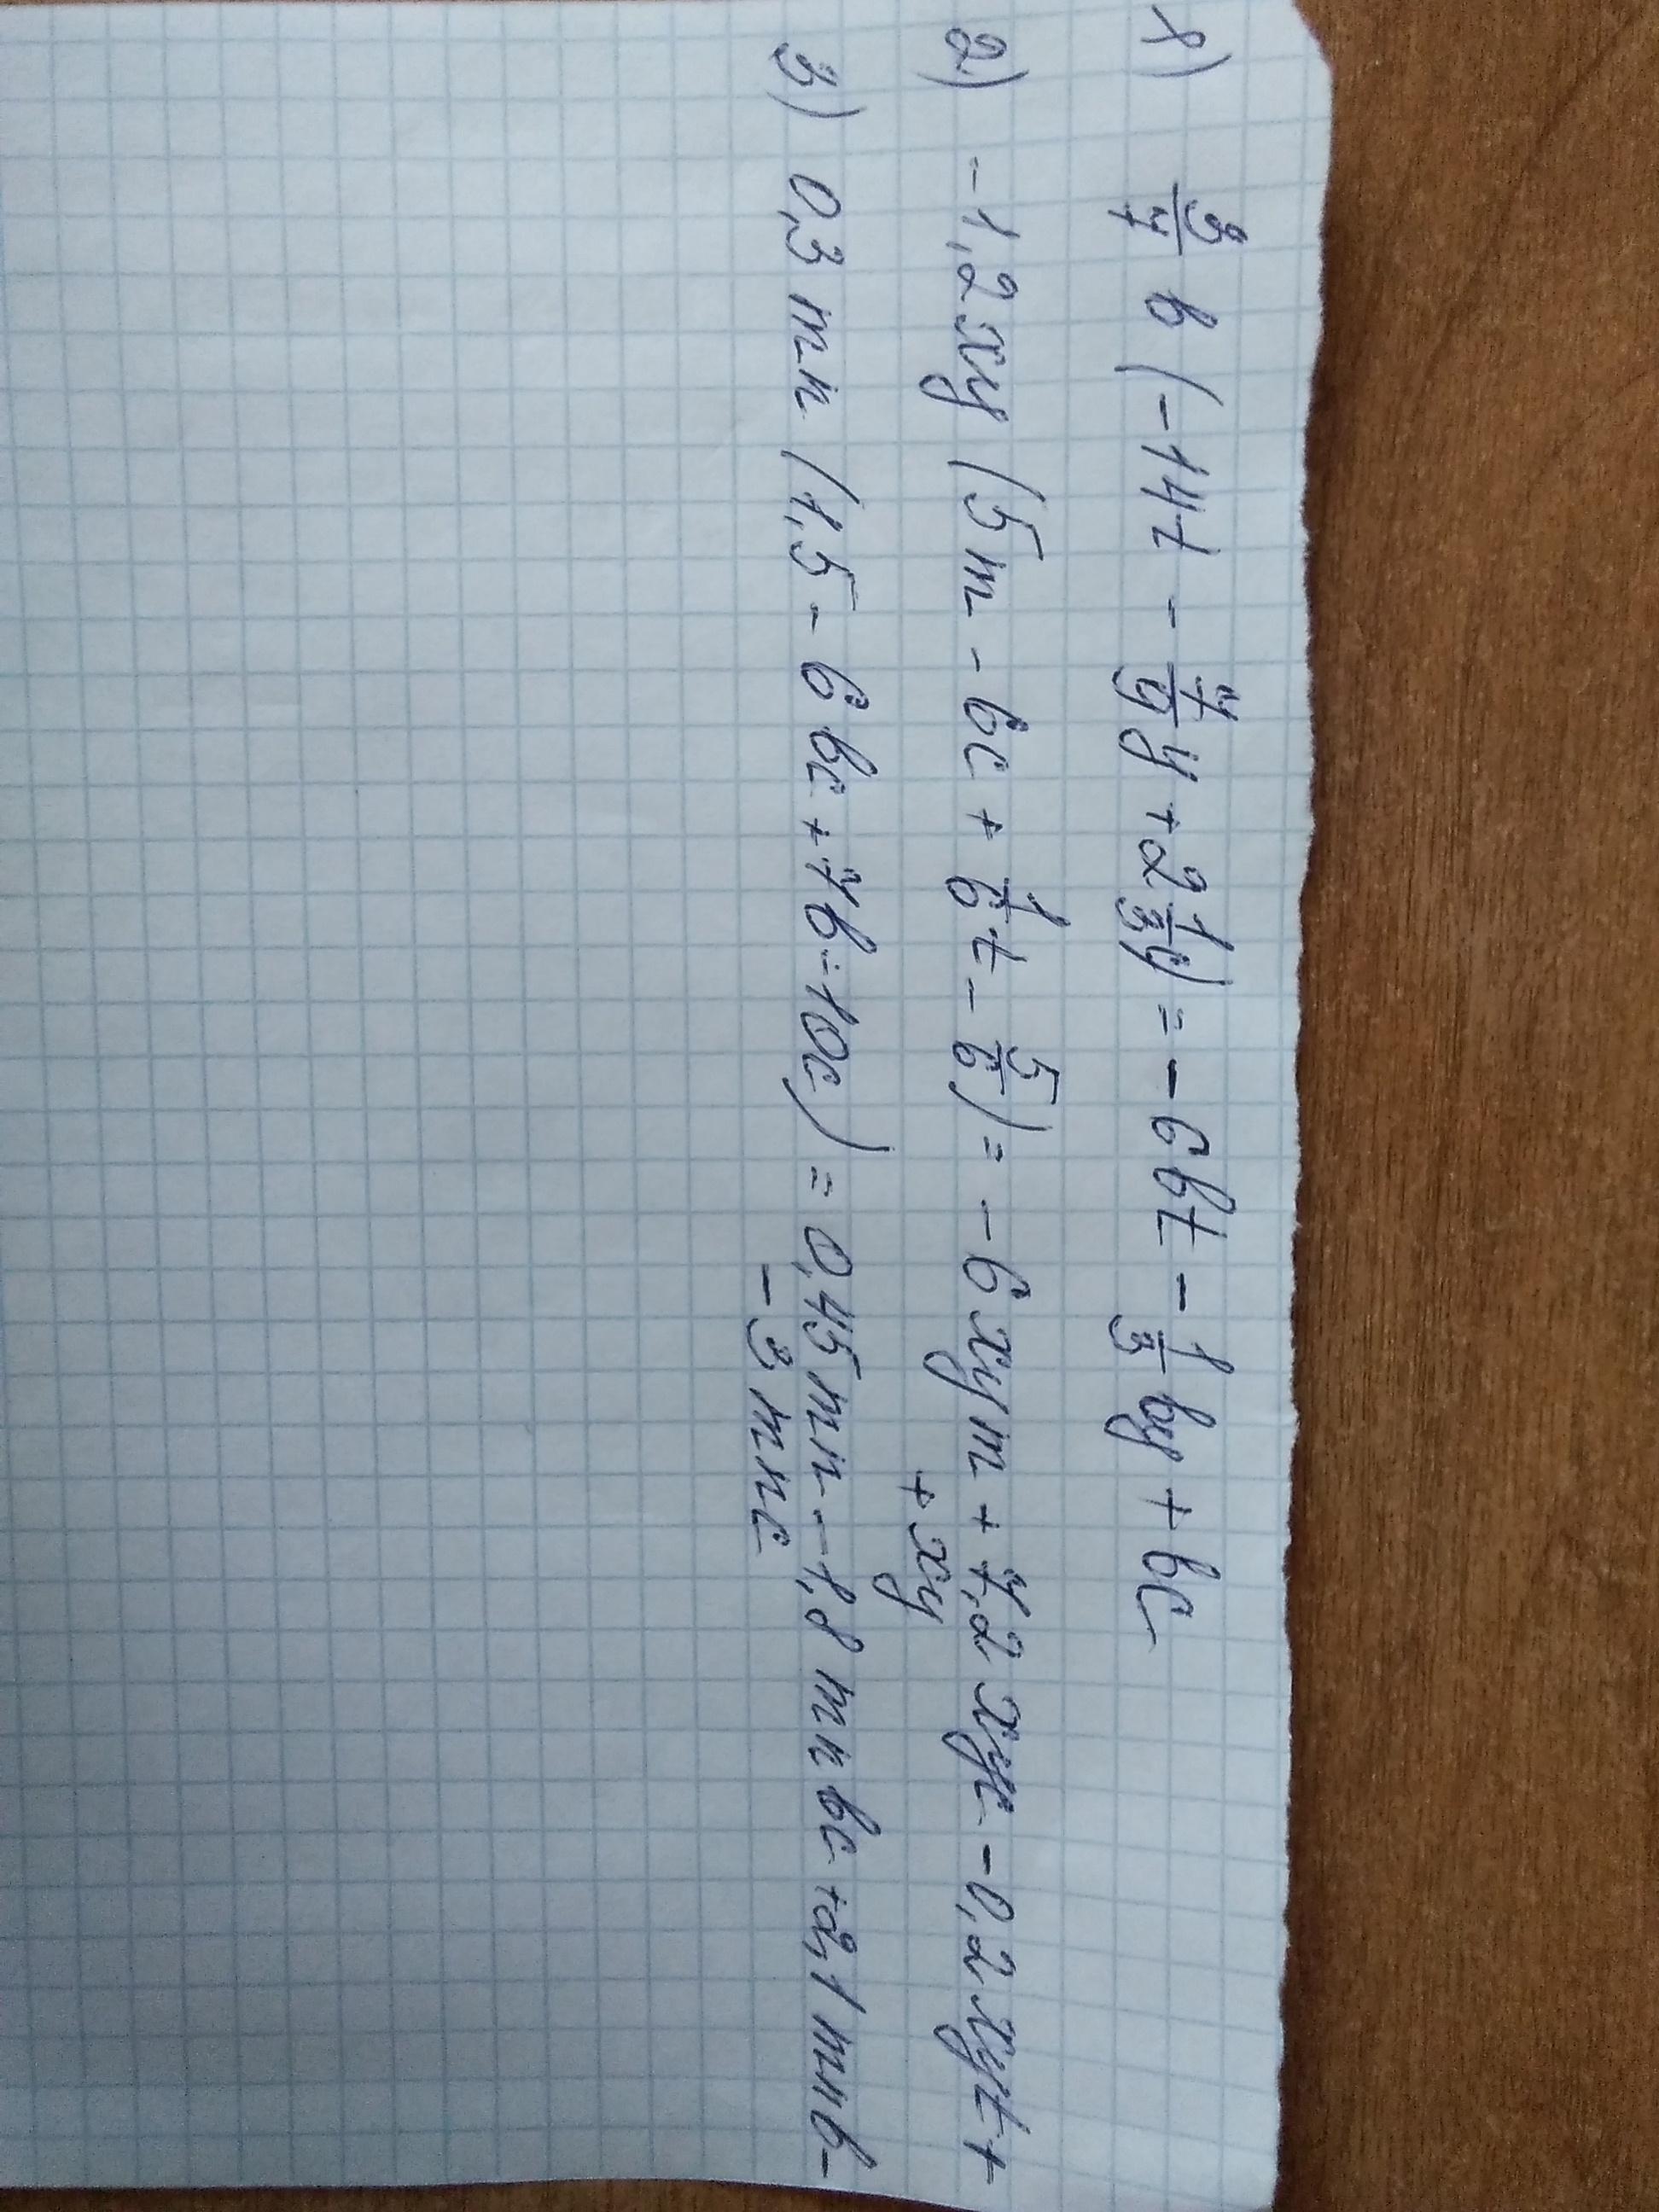 1) 3/7 b (-14t - 7/9 y + 2 1/3 c) = -6bt - 1/3 by + bc
2) -1,2xy (5m - 6c + 1/6 t - 5/6) = -6xym + 7,2xyc - 0,2xyt +
+ xy
3) 0,3mn (1,5 - 6bc + 7b - 10c) = 0,45mn - 1,8mnbc + 2,1mnb -
- 3mnc